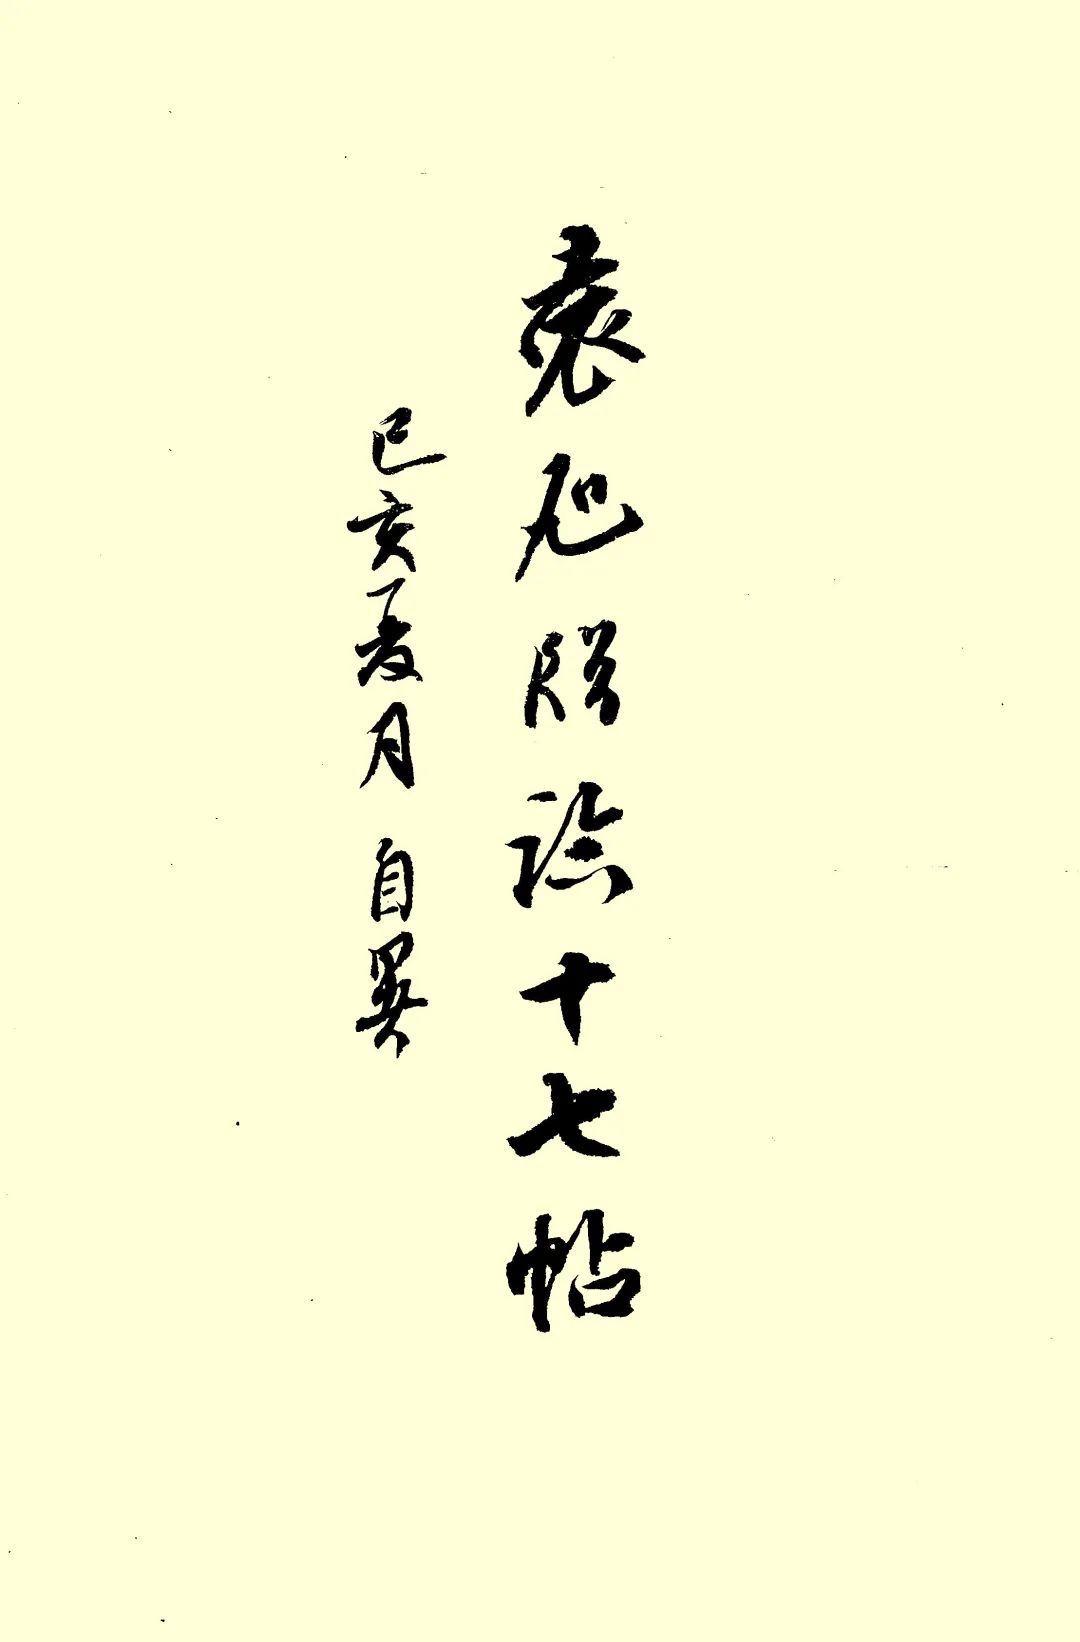 袁旭临十七帖
己亥夏月 自署